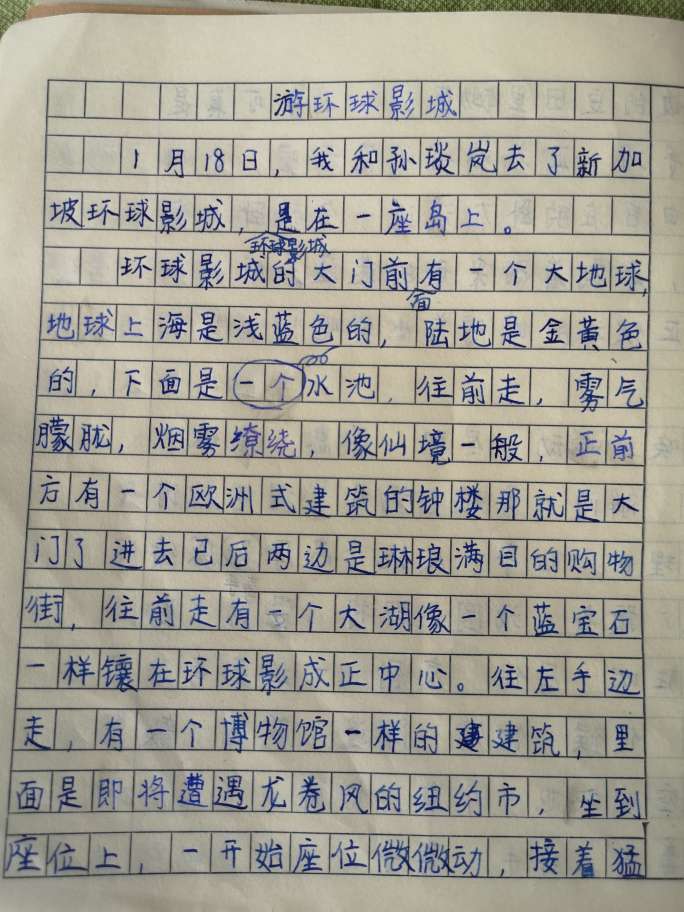 游环球影城
1月18日，我和孙琰岚去了新加
坡环球影城，是在一座岛上。
环球影城
环球影城的大门前有一个大地球，
面
地球上海是浅蓝色的，陆地是金黄色
的，下面是一个水池，往前走，雾气
朦胧，烟雾缭绕，像仙境一般，正前
方有一个欧洲式建筑的钟楼那就是大
门了进去已后两边是琳琅满目的购物
街，往前走有一个大湖像一个蓝宝石
一样镶在环球影成正中心。往左手边
走，有一个博物馆一样的建筑，里
面是即将遭遇龙卷风的纽约市，坐到
座位上，一开始座位微微动，接着猛